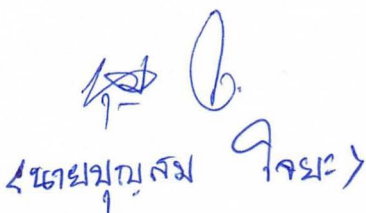 (นายบุญสม ใจยะ)